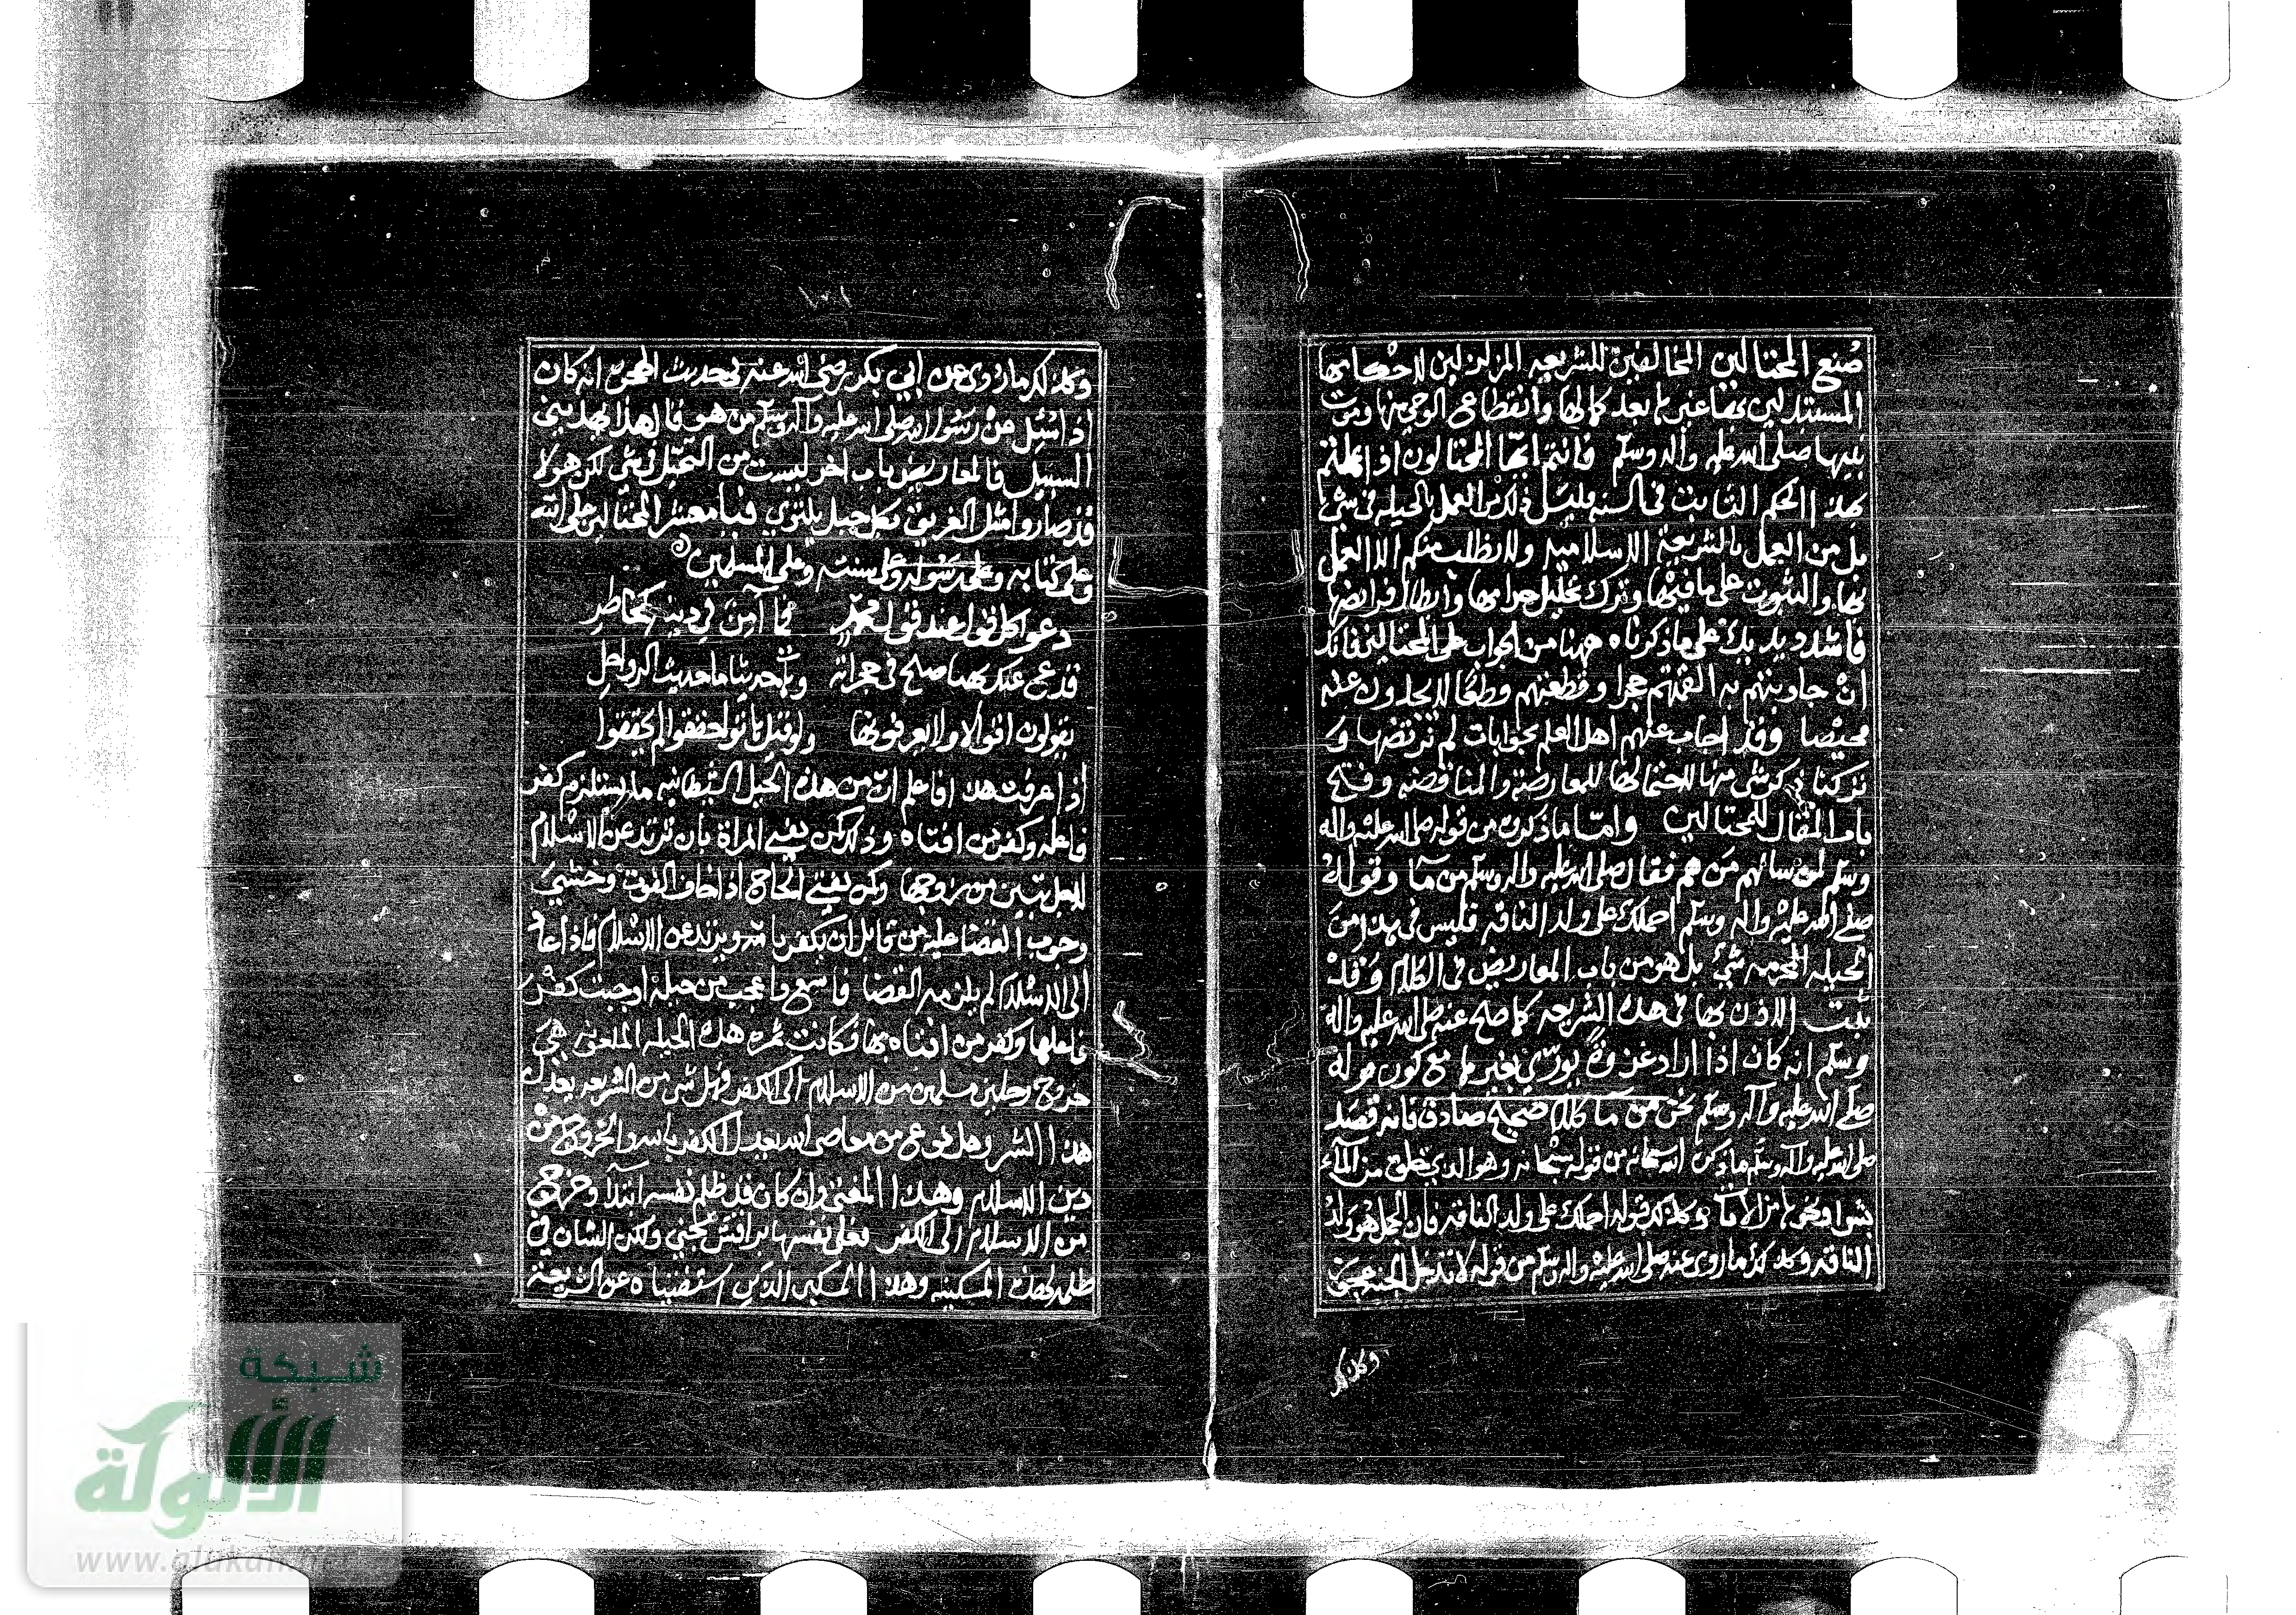 صنع المحتالين المخالفين للشريعه المزلزلين لاحكامها
المستبدلين بها غيرها بعد كمالها وانقطاع الوحي منها وموت
نبيها صلى الله عليه واله وسلم فانتم ايها المحتالون اذا علمتم
بهذا الحكم الثابت في السنه فليس ذلك من العمل بالحيله في شي
بل من العمل بالشريعة الاسلاميه ولا نطلب منكم الا العمل
بها والثبوت على ما فيها وترك تحليل حرامها وابطال فرايضها
فاشدد يديك على ما ذكرناه ههنا من الجواب على المحتالين فانك
ان جاوبتهم به القمتهم حجرا وقطعتهم قطعا لا يجدون عنه
محيصا وقد اجاب عنهم اهل العلم بجوابات لم نرتضها و
تركنا ذكر شي منها لاحتمالها للمعارضة والمناقضه وفتح
باب المقال للمحتالين واما ما ذكروه من قوله صلى الله عليه واله
وسلم لمن سالهم من هم فقال صلى الله عليه واله وسلم من ما وقوله
صلى الله عليه واله وسلم احملك على ولد الناقه فليس في هذا من
الحيله المحرمه شيء بل هو من باب المعاريض في الكلام وقد
ثبت الاذن بها في هذه الشريعه كما صح عنه صلى الله عليه واله
وسلم انه كان اذا اراد غزوة يوري بغيرها مع كون قوله
صلى الله عليه واله وسلم نحن من ما كلام صحيح صادق فانه قصد
صلى الله عليه واله وسلم ما ذكره الله تعالى من قوله سبحانه وهو الذي خلق من الماء
بشرا ونحوها من الايات وكذلك قوله احملك على ولد الناقه فان الجمل هو ولد
الناقه وكذلك ما روى عنه صلى الله عليه واله وسلم من قوله لا تدخل الجنه عجوز
وكذلك
وكذلك ما روى عن ابي بكر رضي الله عنه في حديث الهجرة انه كان
اذا سئل عن رسول الله صلى الله عليه واله وسلم من هو قال هذا يهديني
السبيل فالمعاريض باب اخر ليست من التحيل في شي لكن هولا
قد صاروا مثل الغريق بكل حبل يلتوي فيا معشر المحتالين على الله
وعلى كتابه وعلى رسوله وعلى سنته وعلى المسلمين
دعوا كل قول عند قول محمد فما آمن في دينه كمخاطر
فدع عنك نهبا صيح في حجراته وهات حديثا ما حديث الرواحل
يقولون اقوالا ولا يعرفونها ولو قيل هاتوا حققوا لم يحققوا
اذا عرفت هذا فاعلم ان من هذه الحيل الشيطانيه ما يستلزم كفر
فاعله وكفر من افتاه وذلك كمن يفتي المراة بان ترتد عن الاسلام
لاجل تبين من زوجها وكمن يفتي الحاج اذا خاف الفوت وخشي
وجوب القضا عليه من قابل ان يكفر بالله ويرتد عن الاسلام فاذا عاد
الى الاسلام لم يلزمه القضا فاسمع واعجب من حيلة اوجبت كفر
فاعلها وكفر من افتاه بها فكانت ثمره هذه الحيله الملعونه هي
خروج رجلين مسلمين من الاسلام الى الكفر فهل شر من الشريعه يعدل
هذا الشر وهل نوع من معاصى الله يعدل الكفر بالله والخروج من
دين الاسلام وهذا المفتي وان كان قد ظلم نفسه ابتدآ وخرج
من الاسلام الى الكفر فعلى نفسها براقش تجني ولكن الشان في
ظلمه لهذه المسكينه وهذا المسكين الذين استفتياه عن الشريعة
شبكة
الألوكة
www.alukah.net